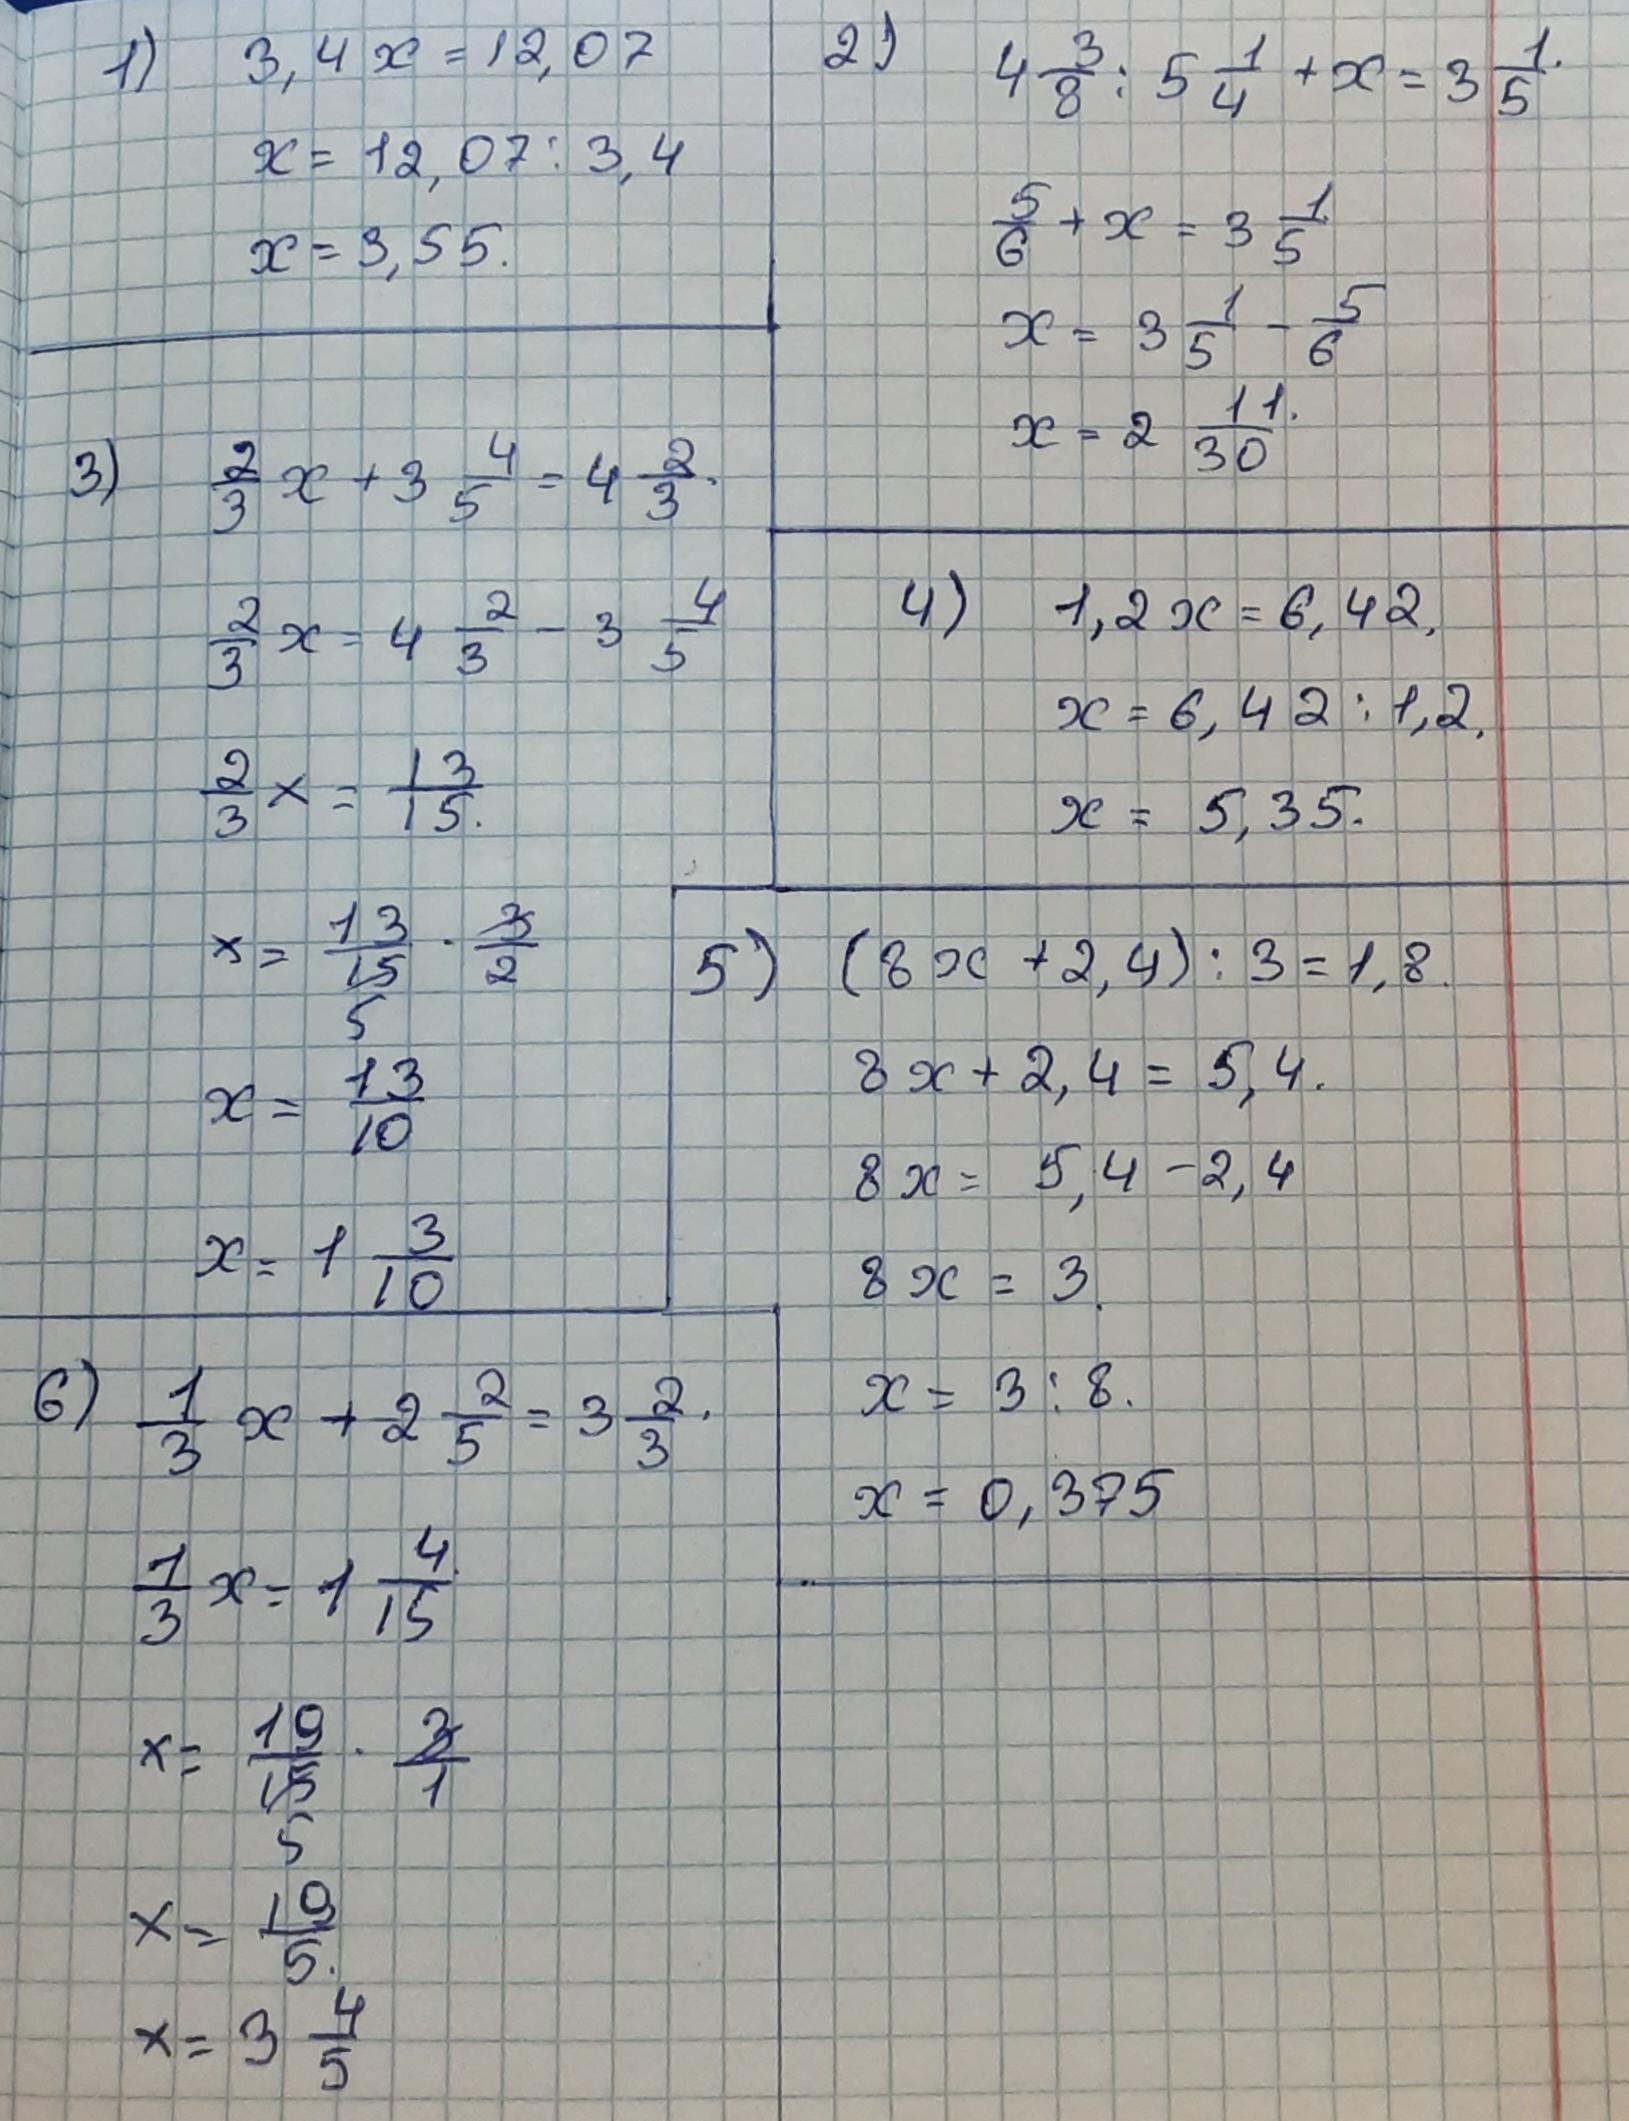 1) 3,4x=12,07
x=12,07:3,4
x=3,55.
2) 4 3/8 : 5 1/4 + x = 3 1/5.
5/6 + x = 3 1/5
x = 3 1/5 - 5/6
x = 2 11/30.
3) 2/3 x + 3 4/5 = 4 2/3.
2/3 x = 4 2/3 - 3 4/5
2/3 x = 13/15.
x = 13/15 · 3/2
5
x = 13/10
x = 1 3/10
4) 1,2x=6,42.
x=6,42:1,2.
x = 5,35.
5) (8x+2,4):3=1,8.
8x+2,4=5,4.
8x= 5,4-2,4
8x = 3.
x= 3:8.
x=0,375
6) 1/3 x + 2 2/5 = 3 2/3.
1/3 x = 1 4/15
x = 19/15 · 3/1
5
x = 19/5.
x = 3 4/5